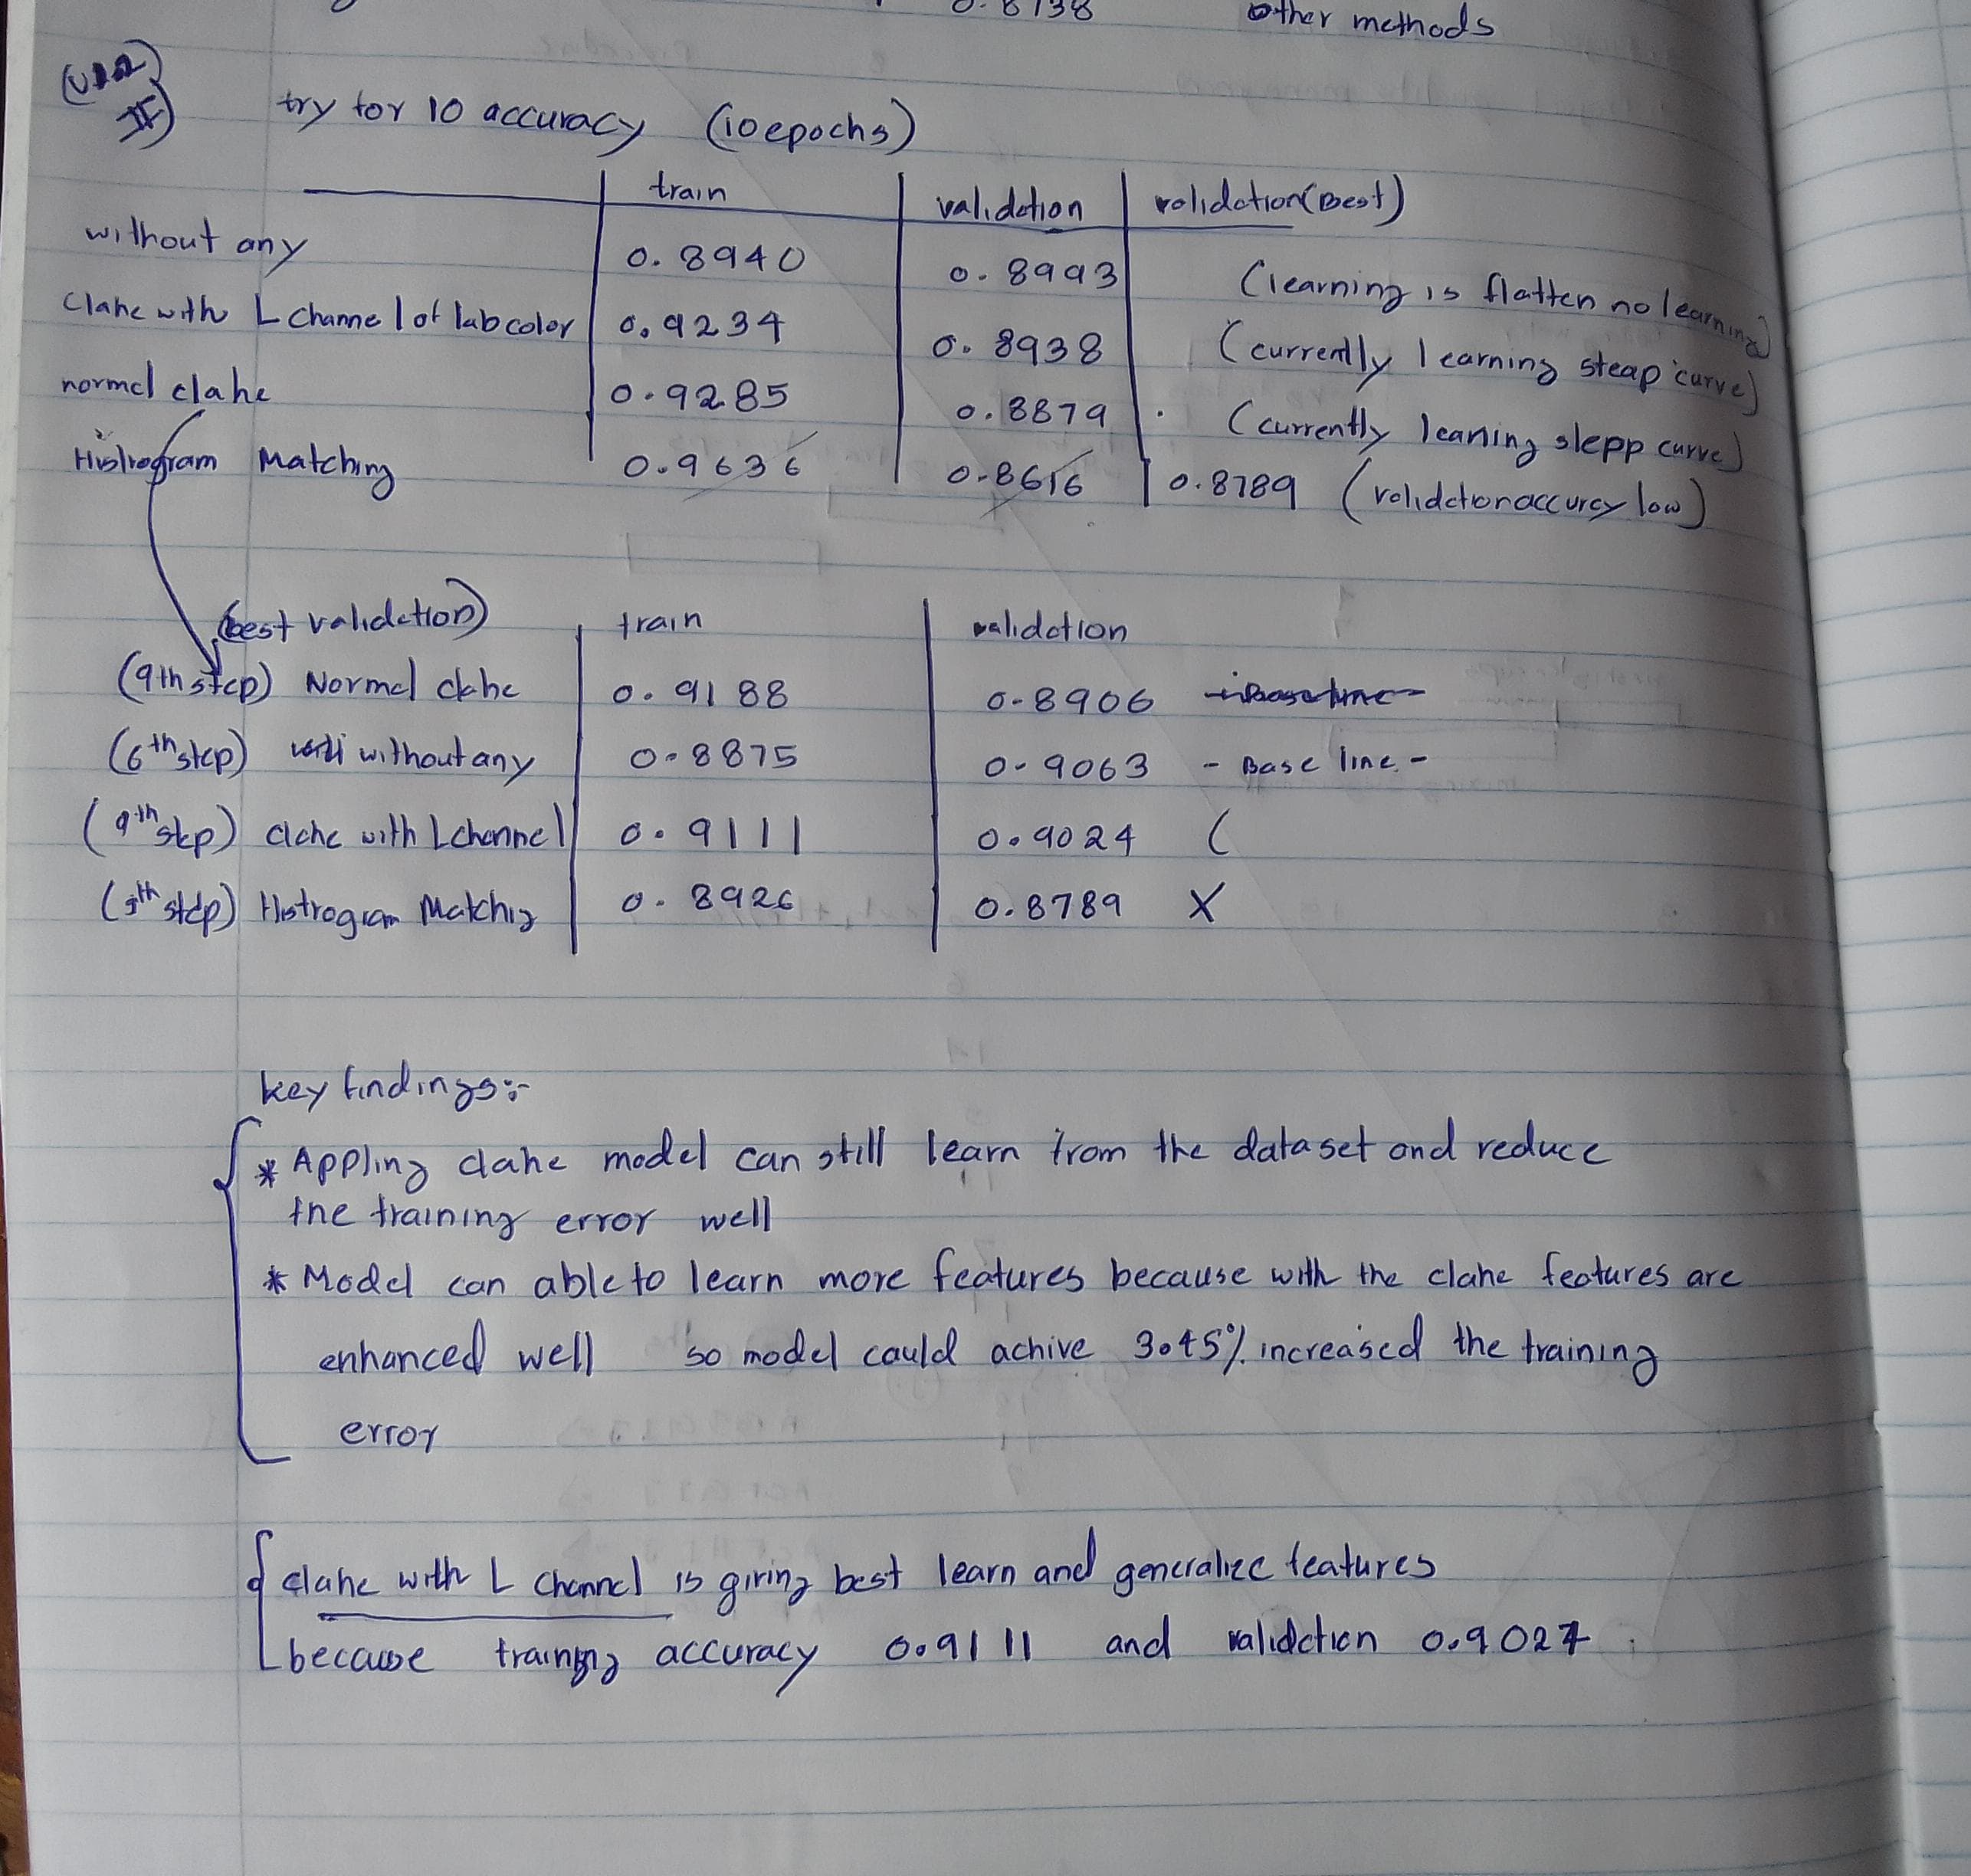 0.8138 other methods
II)
try for 10 accuracy (10 epochs)
train validation validation(Best)
without any 0.8940 0.8993 (learning is flatten no learning)
Clahe with L channel of lab color 0.9234 0.8938 (currently learning steap curve)
normal clahe 0.9285 0.8879 (currently leaning slepp curve)
Histrogram Matching 0.9636 0.8616 0.8789 (validation accurcy low)
(best validation) train validation
(9th step) Normal clahe 0.9188 0.8906 - Base line -
(6th step) without any 0.8875 0.9063 - Base line -
(9th step) clahe with L channel 0.9111 0.9024 (
step) Histrogram Matching 0.8926 0.8789 X
key findings:-
* Appling clahe model can still learn from the dataset and reduce
the training error well
* Model can able to learn more features because with the clahe features are
enhanced well so model could achive 3.45% increased the training
error
clahe with L channel is giving best learn and generalize features
because training accuracy 0.9111 and validation 0.9027